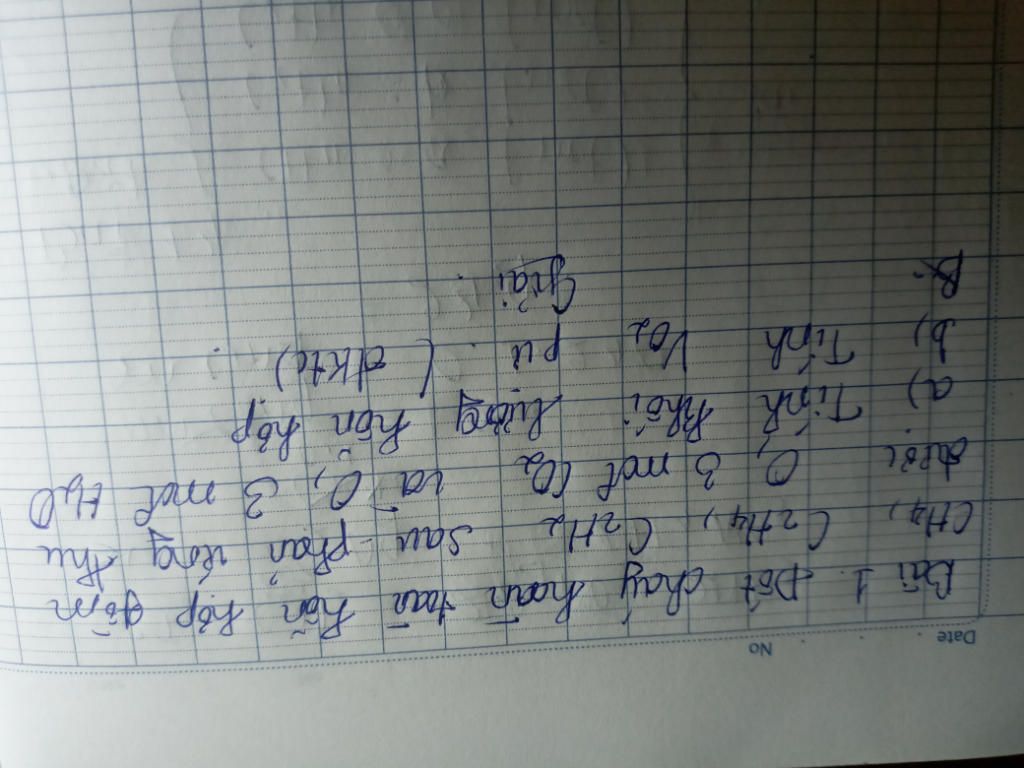 Date No
Bài 1. Đốt cháy hoàn toàn hỗn hợp gồm
CH4, C2H4, C2H2 sau phản ứng thu
được 0,3 mol CO2 và 0,3 mol H2O
a) Tính khối lượng hỗn hợp
b) Tính VO2 pứ (đktc).
Giải